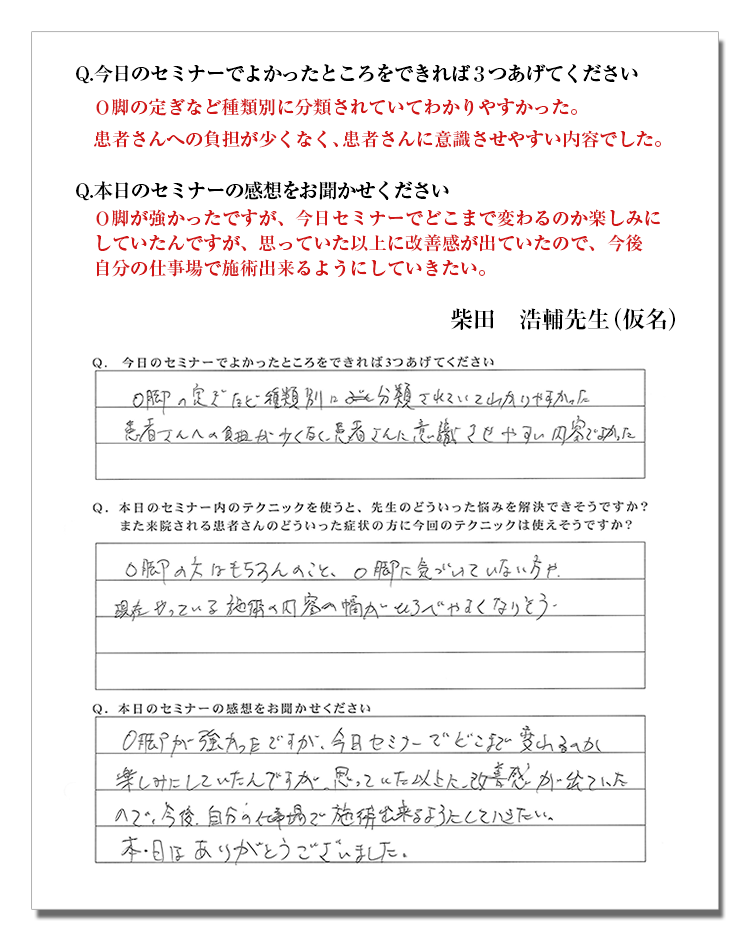 Q.今日のセミナーでよかったところをできれば３つあげてください
Ｏ脚の定ぎなど種類別に分類されていてわかりやすかった。
患者さんへの負担が少くなく、患者さんに意識させやすい内容でした。
Q.本日のセミナーの感想をお聞かせください
Ｏ脚が強かったですが、今日セミナーでどこまで変わるのか楽しみに
していたんですが、思っていた以上に改善感が出ていたので、今後
自分の仕事場で施術出来るようにしていきたい。
柴田　浩輔先生（仮名）
Q. 今日のセミナーでよかったところをできれば3つあげてください
O脚の定ぎなど種類別に分類されていてわかりやすかった
患者さんへの負担が少くなく、患者さんに意識させやすい内容でよかった
Q. 本日のセミナー内のテクニックを使うと、先生のどういった悩みを解決できそうですか？
また来院される患者さんのどういった症状の方に今回のテクニックは使えそうですか？
O脚の方はもちろんのこと、O脚に気づいていない方や、
現在やっている施術の内容の幅がひろべやすくなりそう。
Q. 本日のセミナーの感想をお聞かせください
O脚が強かったですが、今日セミナーでどこまで変わるのか
楽しみにしていたんですが、思っていた以上に改善感が出ていた
ので、今後、自分の仕事場で施術出来るようにしていきたい。
本日はありがとうございました。